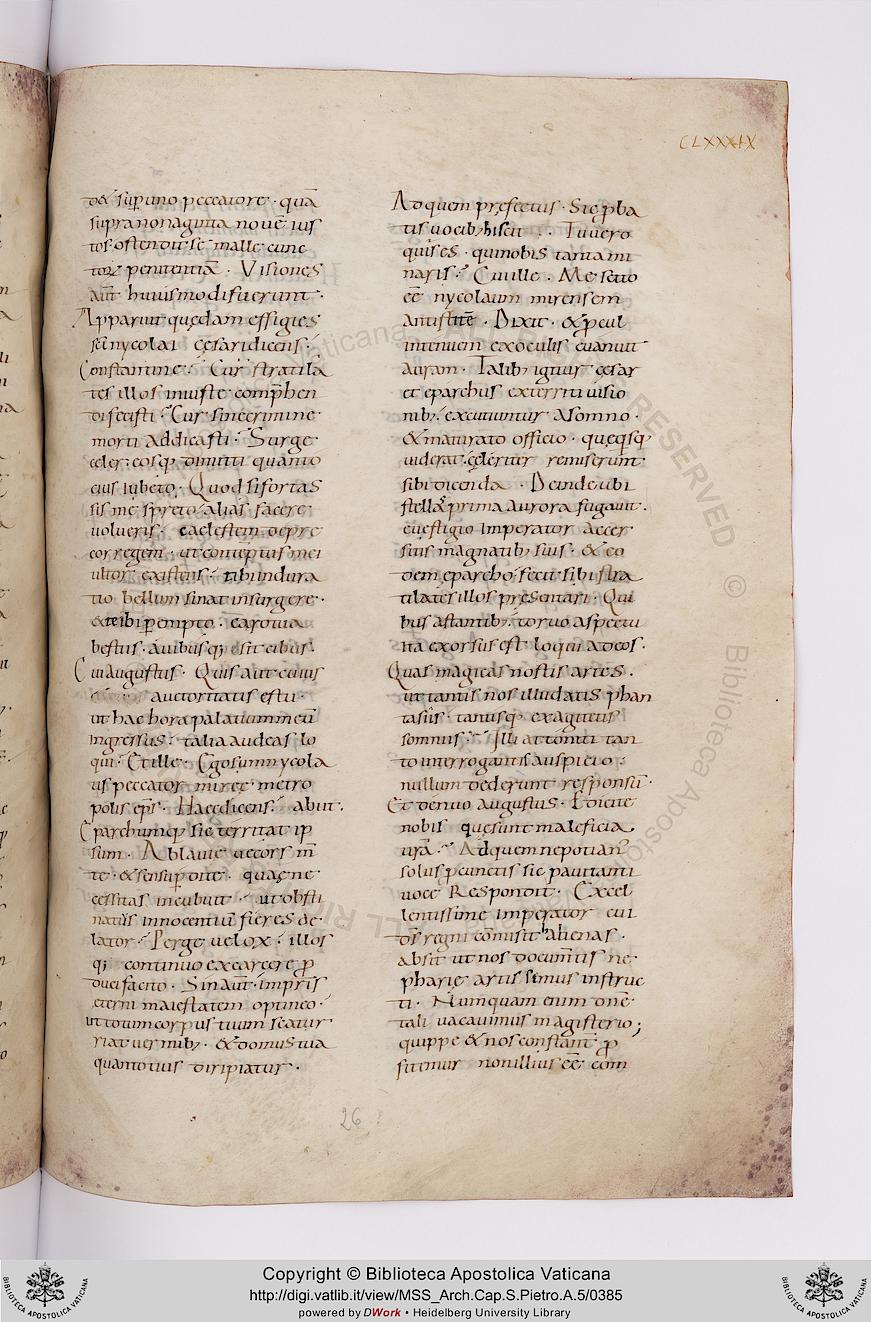 CLXXXIX
d&́ sup uno peccatore · quā
supra nonaginta nouē ius
tos ostendit se malle cunc
torꝝ penitentiā · Visiones
aūt huiusmodi fuerunt ·
Apparuit quędam effigies
sc̄i nycolai cęsari dicens ·
Constantine · Cur stratila
tes illos iniuste comp̄hen
di fecisti · Cur sine crimine
morti addicasti · Surge
celer · eosq; dimitti quanto
cius iubeto · Quod si fortas
sis me spreto alias facere
uolueris · caelestem depre
cor regem · ut contēptus mei
ultor existens · tibi indura
tio bellum sinat insurgere ·
& te ibi perempto · caro tua
bestiis · auibusq; sit cibus ·
Cui augustus · Quis aut cuius
auctoritatis es tu ·
ut hac hora palatium meū
ingressus · talia audeas lo
qui · Et ille · Ego sum nycola
us peccator mireę metro
polis ep̄s · Haec dicens · abiit ·
Eparchumq; sic territat ip
sum · Ablauie uecors m̄
te · & sensu pdite · quae ne
cessitas incubuit · ut obsti
natus innocentiū fieres de
lator · Perge uelox · illos
q; continuo ex carcere p
duci facito · Sin aūt · impris
eterni maiestatem optineo ·
ut totum corpus tuum scatur
riat uermib; · & domus tua
quantotius diripiatur ·
Ad quem pręfectus · Sic pba
tis uocib; hiscit · · Tu uero
quis es · qui nobis tanta mi
naris · Cui ille · Me scito
eē nycolaum mirensem
antistitē · Dixit · & pcul
intuitiem ex oculis euanuit
auram · Talib; igitur cęsar
et eparchus exterriti uisio
nib; excutiuntur a somno ·
& maturato officio · quęq; sq;
uiderat · cęleriter remiserunt
sibi dicenda · Deinde ubi
stellas prima aurora fugauit ·
euestigio imperator accer
sitis magnatib; suis · & eo
dem eparcho · fecit sibi stra
tilates illos pręsentari · Qui
bus astantib; · toruo aspectu
ita exorsus est loqui ad eos ·
Quas magicas nostis artes ·
ut tantis nos illudatis phan
tasiis · tantisq; exagitetis
somniis · Illi attoniti tan
to interrogantis auspicio ·
nullum dederunt responsū ·
Et denuo augustus · Edicite
nobis quę sunt maleficia
ur̄a · Ad quem nepotian'
solus p cunctis sic pauitanti
uoce Respondit · Excel
lentissime imperator cui
dn̄s regni cōmisit habenas ·
absit ut nos documtis ne
pharię artis simus instruc
ti · Numquam enim dn̄e
tali uacauimus magisterio;
quippe & nos constant p
fitemur nonillius eē com
26
Copyright © Biblioteca Apostolica Vaticana
http://digi.vatlib.it/view/MSS_Arch.Cap.S.Pietro.A.5/0385
powered by DWork • Heidelberg University Library